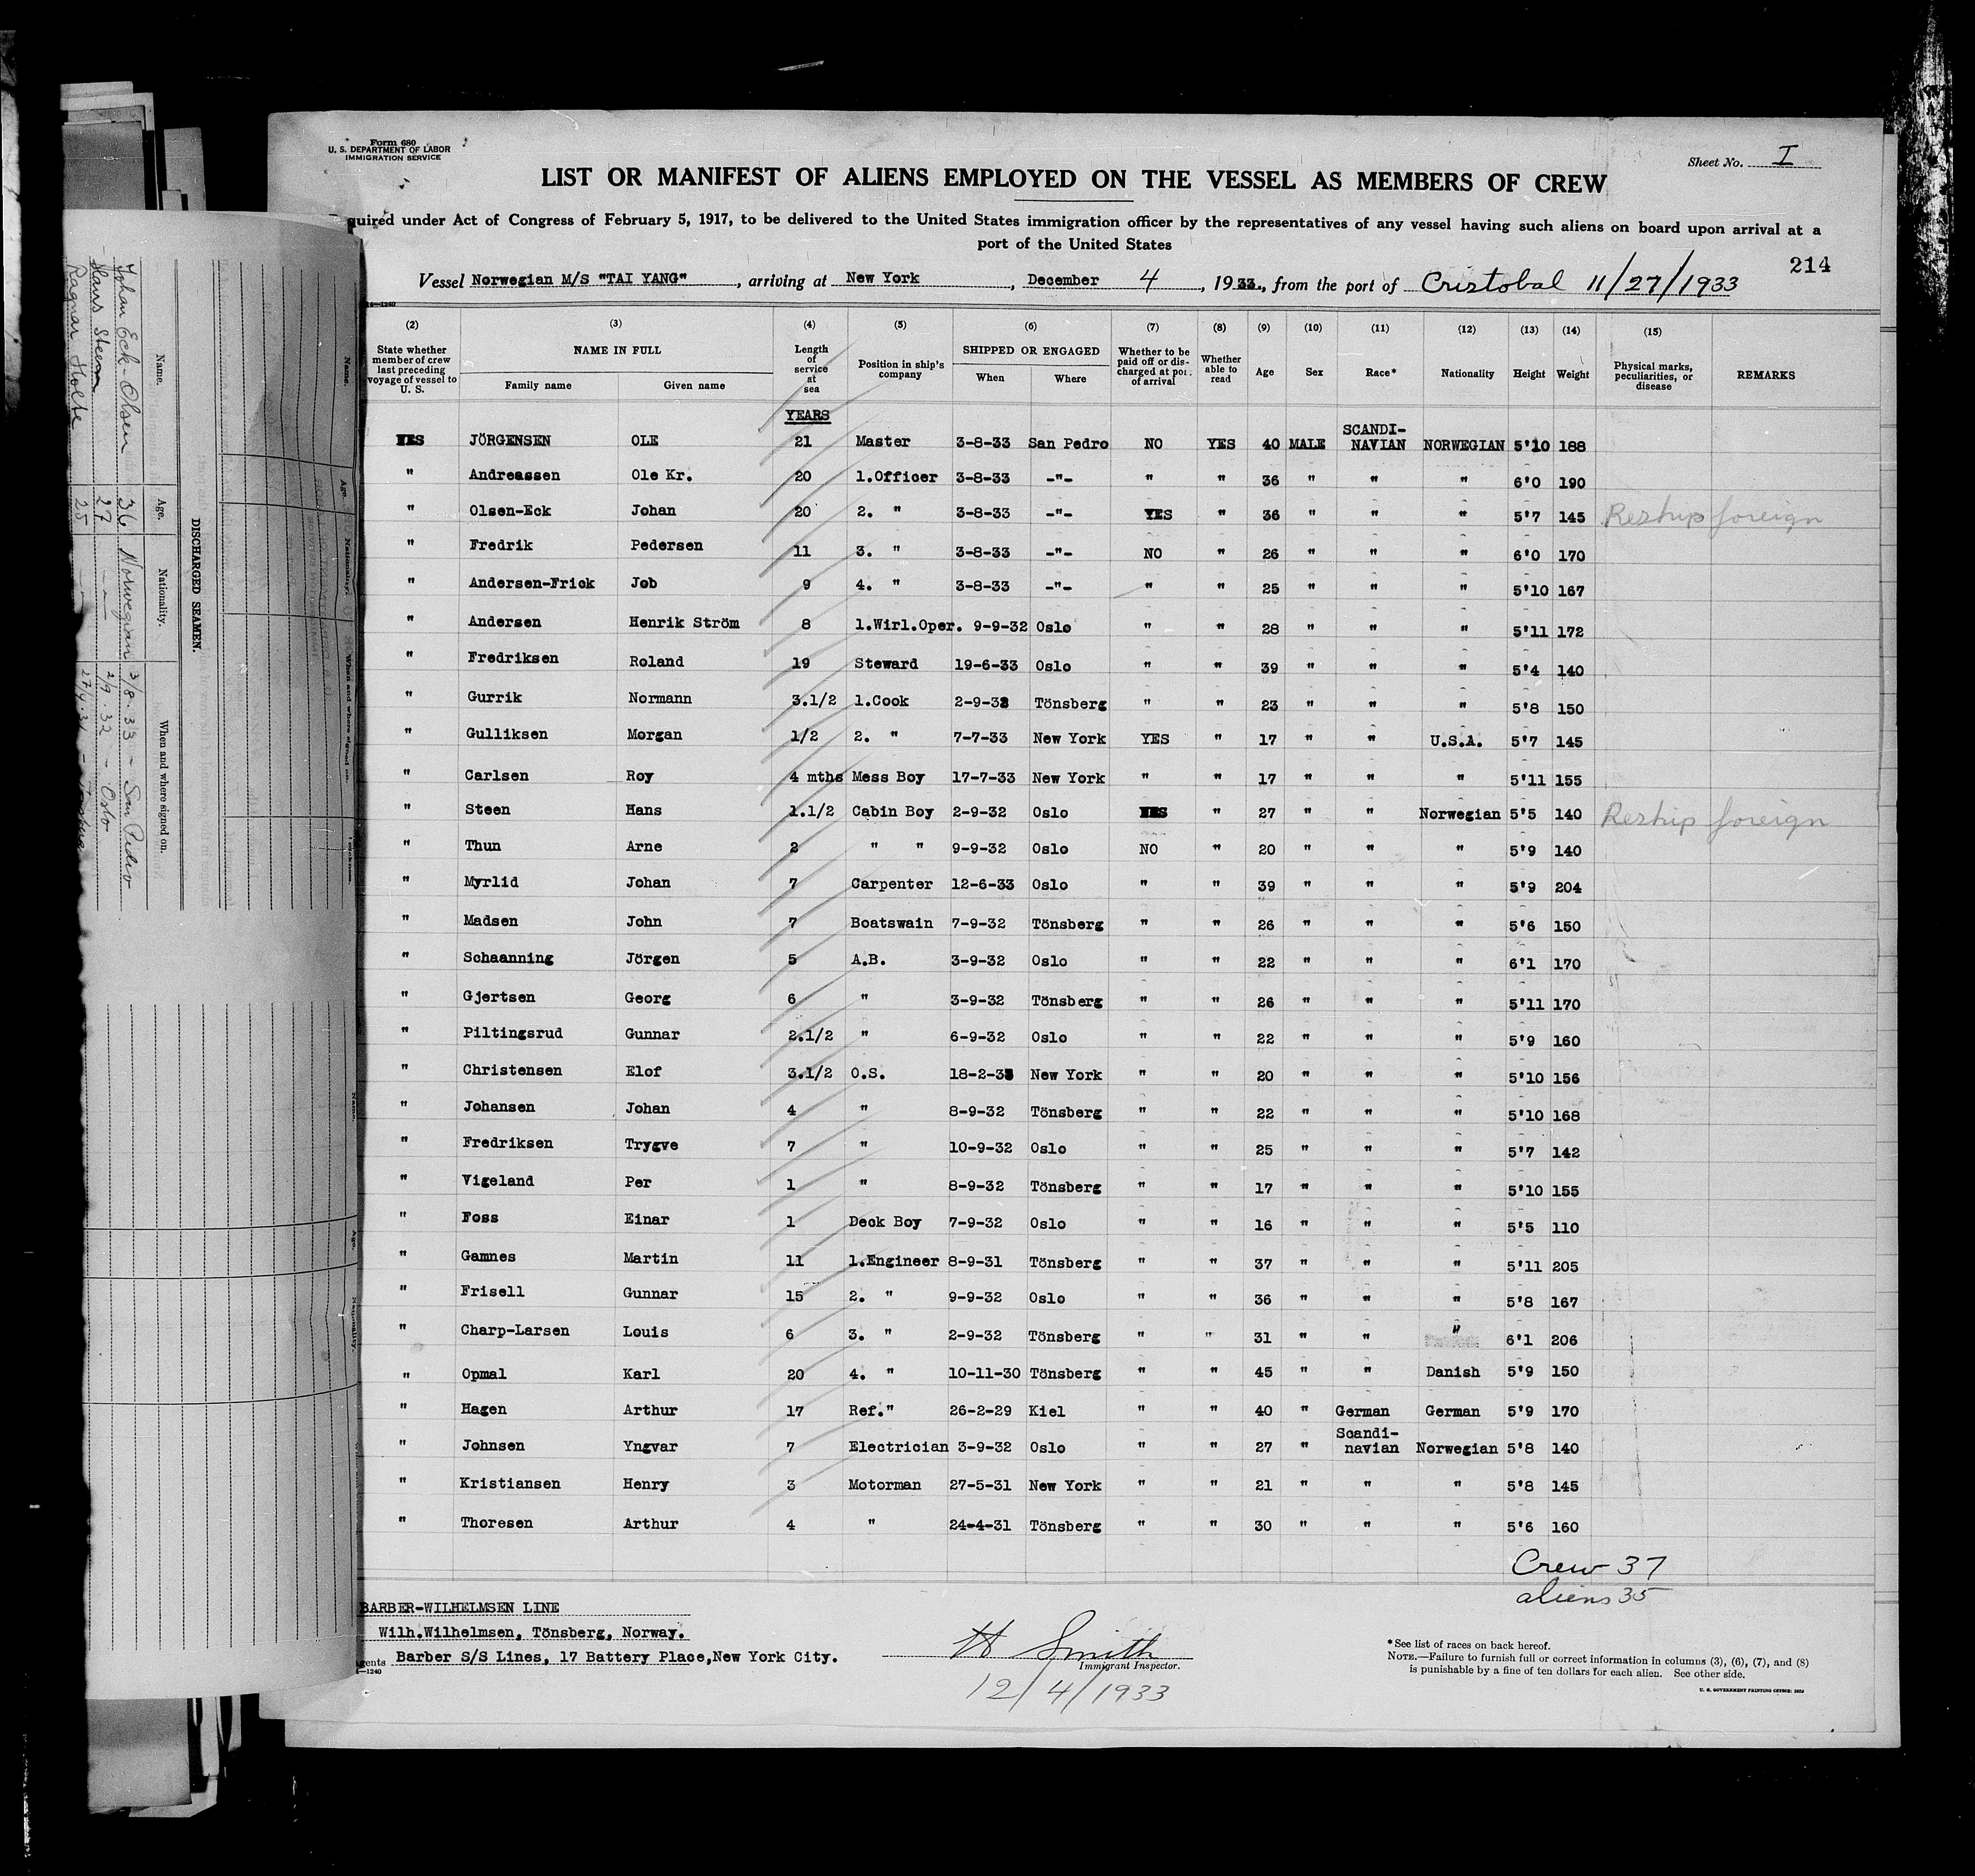 Form 680
U. S. DEPARTMENT OF LABOR
IMMIGRATION SERVICE
Sheet No. I
LIST OR MANIFEST OF ALIENS EMPLOYED ON THE VESSEL AS MEMBERS OF CREW
quired under Act of Congress of February 5, 1917, to be delivered to the United States immigration officer by the representatives of any vessel having such aliens on board upon arrival at a
port of the United States
214
Vessel Norwegian M/S "TAI YANG", arriving at New York, December 4, 1933, from the port of Cristobal 11/27/1933
(2) (3) (4) (5) (6) (7) (8) (9) (10) (11) (12) (13) (14) (15)
State whether member of crew last preceding voyage of vessel to U. S. NAME IN FULL Family name Given name Length of service at sea Position in ship's company SHIPPED OR ENGAGED When Where Whether to be paid off or discharged at port of arrival Whether able to read Age Sex Race* Nationality Height Weight Physical marks, peculiarities, or disease REMARKS
YEARS
YES JÖRGENSEN OLE 21 Master 3-8-33 San Pedro NO YES 40 MALE SCANDI-NAVIAN NORWEGIAN 5'10 188
" Andreassen Ole Kr. 20 1.Officer 3-8-33 -"- " " 36 " " " 6'0 190
" Olsen-Eck Johan 20 2. " 3-8-33 -"- YES " 36 " " " 5'7 145 Reship foreign
" Fredrik Pedersen 11 3. " 3-8-33 -"- NO " 26 " " " 6'0 170
" Andersen-Frick Job 9 4. " 3-8-33 -"- " " 25 " " " 5'10 167
" Andersen Henrik Ström 8 1.Wirl.Oper. 9-9-32 Oslo " " 28 " " " 5'11 172
" Fredriksen Roland 19 Steward 19-6-33 Oslo " " 39 " " " 5'4 140
" Gurrik Normann 3.1/2 1.Cook 2-9-32 Tönsberg " " 23 " " " 5'8 150
" Gulliksen Morgan 1/2 2. " 7-7-33 New York YES " 17 " " U.S.A. 5'7 145
" Carlsen Roy 4 mths Mess Boy 17-7-33 New York " " 17 " " " 5'11 155
" Steen Hans 1.1/2 Cabin Boy 2-9-32 Oslo YES " 27 " " Norwegian 5'5 140 Reship foreign
" Thun Arne 2 " " 9-9-32 Oslo NO " 20 " " " 5'9 140
" Myrlid Johan 7 Carpenter 12-6-33 Oslo " " 39 " " " 5'9 204
" Madsen John 7 Boatswain 7-9-32 Tönsberg " " 26 " " " 5'6 150
" Schaanning Jörgen 5 A.B. 3-9-32 Oslo " " 22 " " " 6'1 170
" Gjertsen Georg 6 " 3-9-32 Tönsberg " " 26 " " " 5'11 170
" Piltingsrud Gunnar 2.1/2 " 6-9-32 Oslo " " 22 " " " 5'9 160
" Christensen Elof 3.1/2 O.S. 18-2-33 New York " " 20 " " " 5'10 156
" Johansen Johan 4 " 8-9-32 Tönsberg " " 22 " " " 5'10 168
" Fredriksen Trygve 7 " 10-9-32 Oslo " " 25 " " " 5'7 142
" Vigeland Per 1 " 8-9-32 Tönsberg " " 17 " " " 5'10 155
" Foss Einar 1 Deck Boy 7-9-32 Oslo " " 16 " " " 5'5 110
" Gamnes Martin 11 1.Engineer 8-9-31 Tönsberg " " 37 " " " 5'11 205
" Frisell Gunnar 15 2. " 9-9-32 Oslo " " 36 " " " 5'8 167
" Charp-Larsen Louis 6 3. " 2-9-32 Tönsberg " " 31 " " " 6'1 206
" Opmal Karl 20 4. " 10-11-30 Tönsberg " " 45 " " Danish 5'9 150
" Hagen Arthur 17 Ref." 26-2-29 Kiel " " 40 " German German 5'9 170
" Johnsen Yngvar 7 Electrician 3-9-32 Oslo " " 27 " Scandi-navian Norwegian 5'8 140
" Kristiansen Henry 3 Motorman 27-5-31 New York " " 21 " " " 5'8 145
" Thoresen Arthur 4 " 24-4-31 Tönsberg " " 30 " " " 5'6 160
Crew 37
aliens 35
BARBER-WILHELMSEN LINE
Wilh.Wilhelmsen, Tönsberg, Norway.
gents Barber S/S Lines, 17 Battery Place,New York City.
H Smith
Immigrant Inspector.
12/4/1933
*See list of races on back hereof.
NOTE.—Failure to furnish full or correct information in columns (3), (6), (7), and (8)
is punishable by a fine of ten dollars for each alien. See other side.
U. S. GOVERNMENT PRINTING OFFICE:
DISCHARGED SEAMEN.
Name. Age. Nationality. When and where signed on.
Johan Eck-Olsen 36 Norwegian 3/8.33 - San Pedro
Hans Steen 27 - " - 2/9.32 - Oslo
Ragnar Holte 25